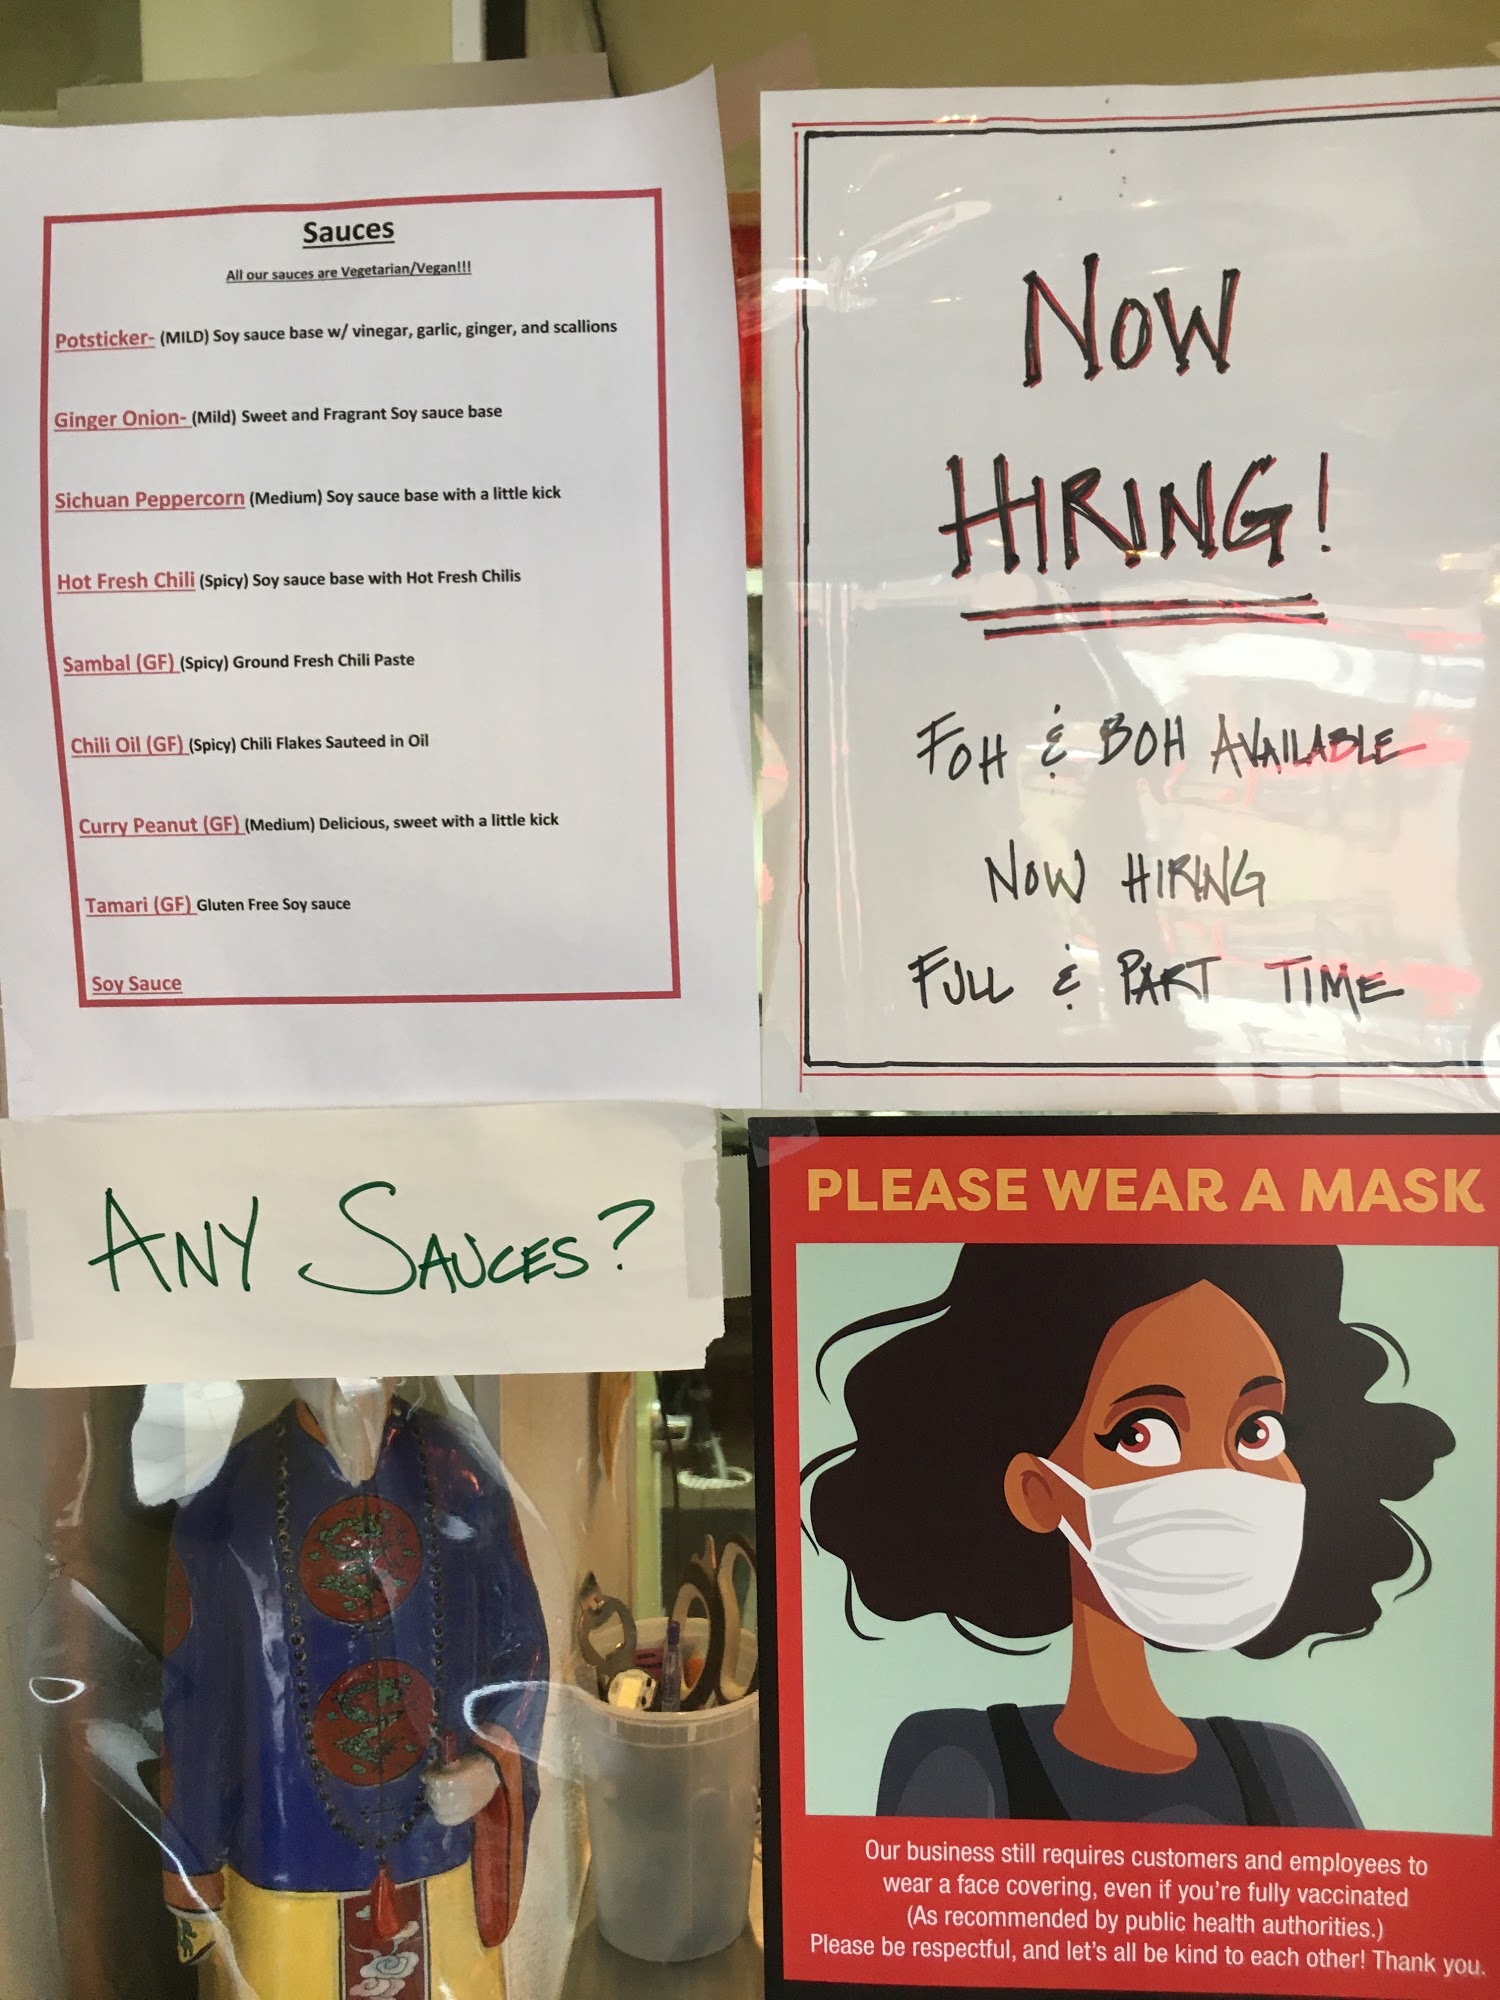 Sauces
All our sauces are Vegetarian/Vegan!!!
Potsticker- (MILD) Soy sauce base w/ vinegar, garlic, ginger, and scallions
Ginger Onion- (Mild) Sweet and Fragrant Soy sauce base
Sichuan Peppercorn (Medium) Soy sauce base with a little kick
Hot Fresh Chili (Spicy) Soy sauce base with Hot Fresh Chilis
Sambal (GF) (Spicy) Ground Fresh Chili Paste
Chili Oil (GF) (Spicy) Chili Flakes Sauteed in Oil
Curry Peanut (GF) (Medium) Delicious, sweet with a little kick
Tamari (GF) Gluten Free Soy sauce
Soy Sauce
NOW
HIRING!
FOH & BOH AVAILABLE
NOW HIRING
FULL & PART TIME
ANY SAUCES?
PLEASE WEAR A MASK
Our business still requires customers and employees to
wear a face covering, even if you're fully vaccinated
(As recommended by public health authorities.)
Please be respectful, and let's all be kind to each other! Thank you.